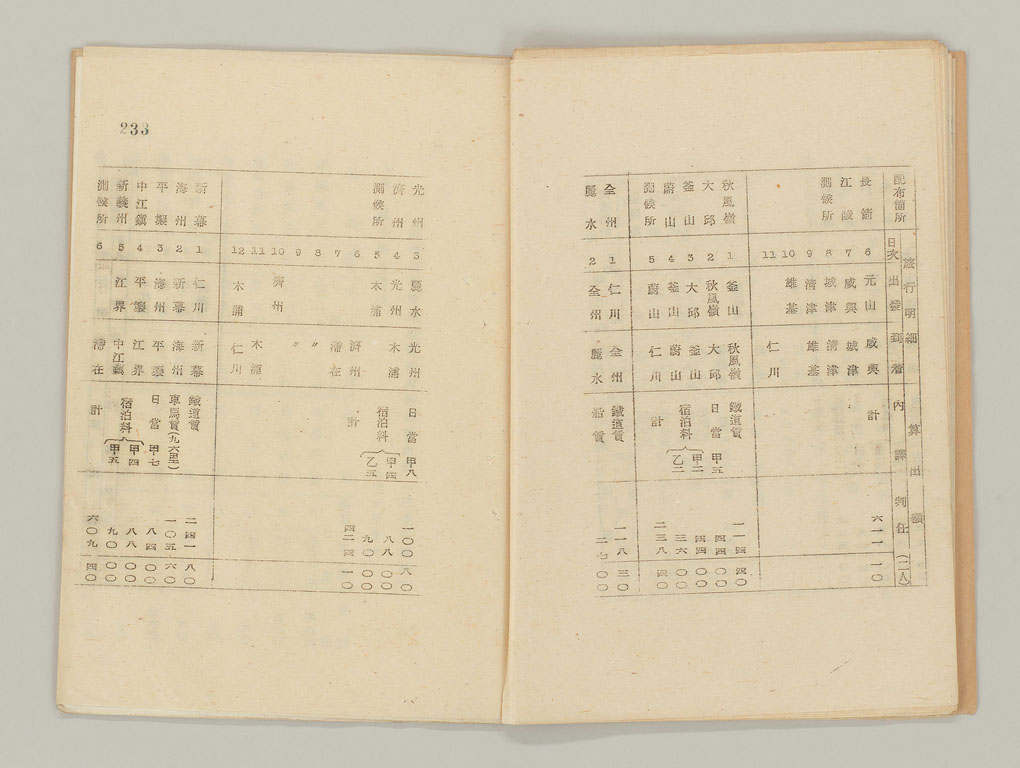 配布箇所 旅行明細 算出額
日次 出發 到着 内譯 判任(二人)
長箭 6 元山 咸興 計 六一一 一〇
江陵 7 咸興 城津
測候所 8 城津 清津
9 清津 雄基
10 雄基
11 仁川
秋風嶺 1 釜山 秋風嶺 鐵道賃 一一四 四〇
大邱 2 秋風嶺 大邱 日當 甲五 四四 〇〇
釜山 3 大邱 釜山 宿泊料 甲二 四四 〇〇
蔚山 4 釜山 蔚山 乙二 三六 〇〇
測候所 5 蔚山 仁川 計 二三八 四〇
全州 1 仁川 全州 鐵道賃 一一八 三〇
麗水 2 全州 麗水 船賃 二七 〇〇
233
光州 3 麗水 光州 日當 甲八 一〇〇 八〇
濟州 4 光州 木浦 宿泊料 甲四 八八 〇〇
測候所 5 木浦 乙五 九〇 〇〇
6 濟州 計 四二四 一〇
7 滯在
8 〃
9 〃
10 濟州
11 木浦
12 木浦 仁川
新幕 1 仁川 新幕 鐵道賃 二四一 八〇
海州 2 新幕 海州 車馬賃(九六里) 一〇五 六〇
平壤 3 海州 平壤 日當 甲七 八四 〇〇
中江鎭 4 平壤 江界 宿泊料 甲四 八八 〇〇
新義州 5 江界 中江鎭 甲五 九〇 〇〇
測候所 6 滯在 計 六〇九 四〇